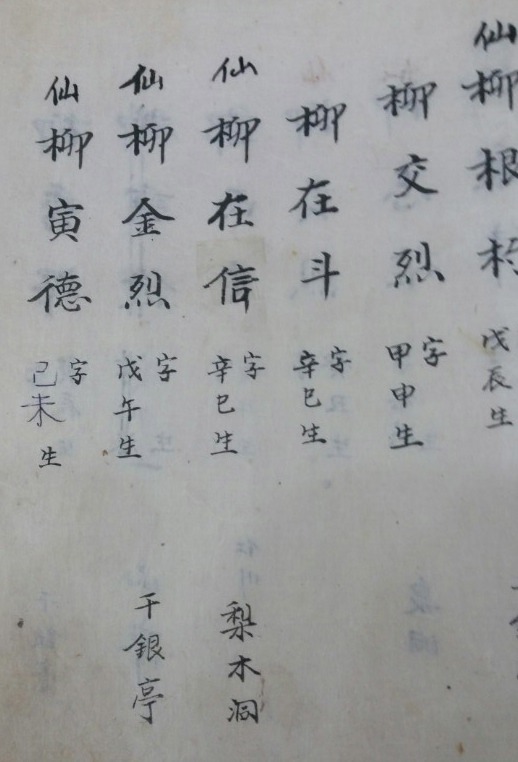 仙柳根
戊辰生
柳交烈
字
甲申生
柳在斗
字
辛巳生
仙柳在信
字
辛巳生
梨木洞
仙柳金烈
字
戊午生
千銀亭
仙柳寅德
字
己未生